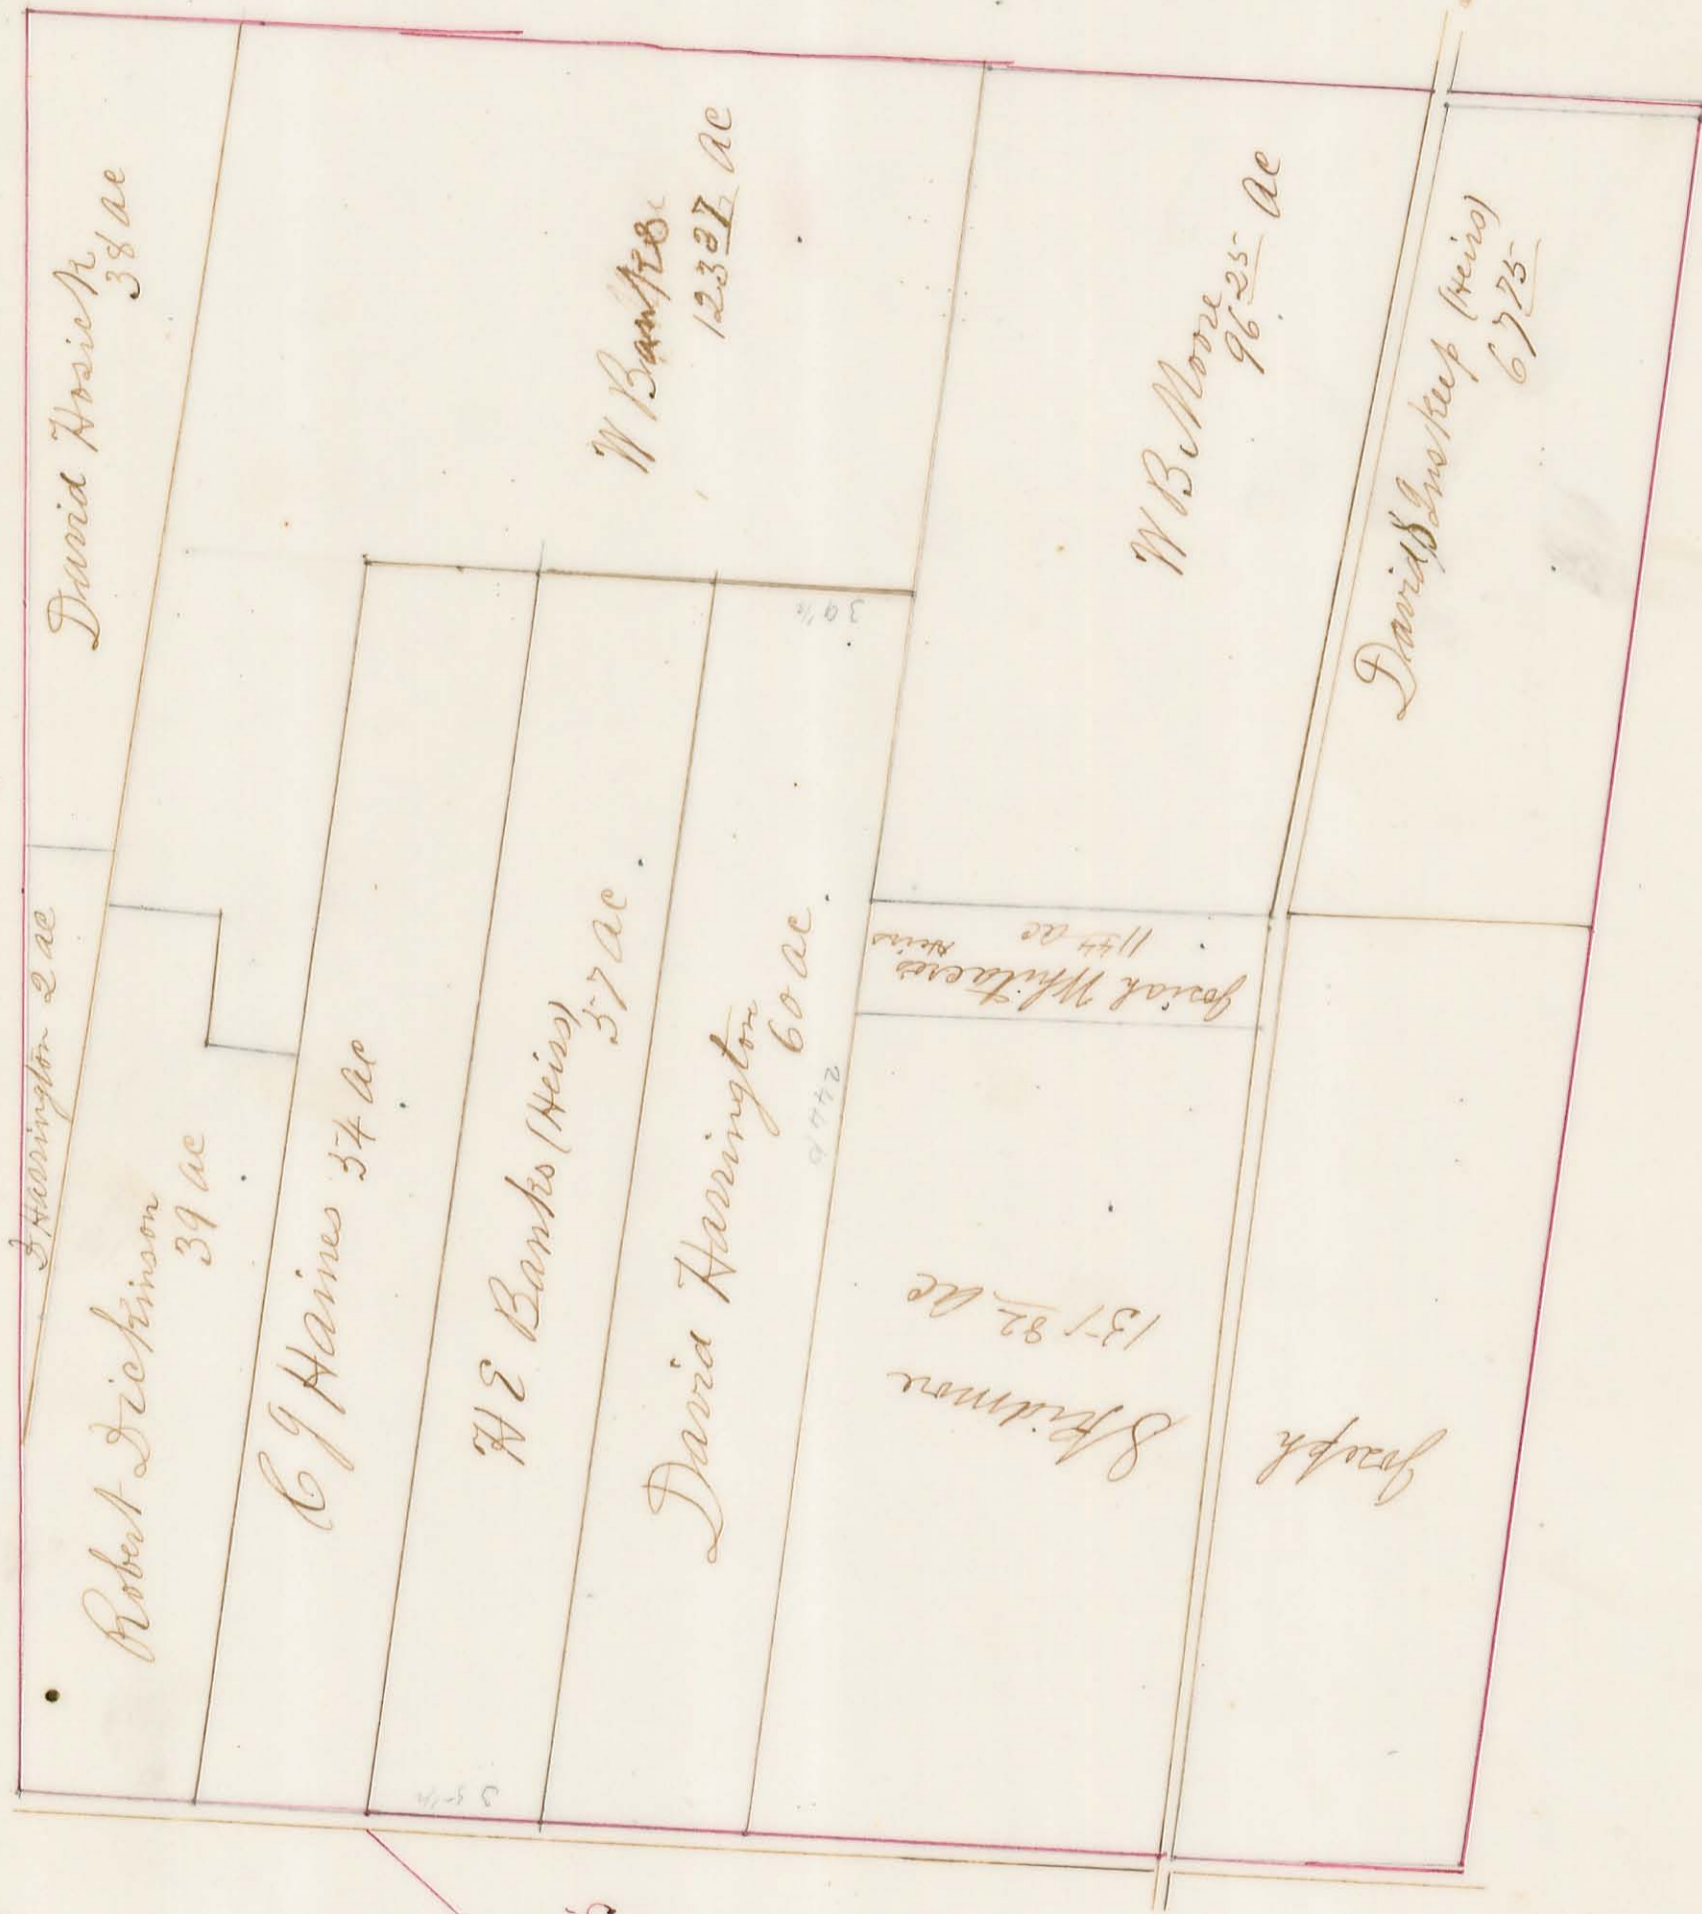 David Hosick
38 ac
D Harrington 2 ac
Robert Dickinson
39 ac
C J Haines 54 ac
H E Banks (Heirs)
57 ac
David Harrington
60 ac
W Banks
123 37 ac
W B Moore
96 25 ac
David Inskeep (Heirs)
67 75
Josiah Whitacres
Heirs
11 44 ac
Joseph
Skidmore
151 82 ac
39 1/2